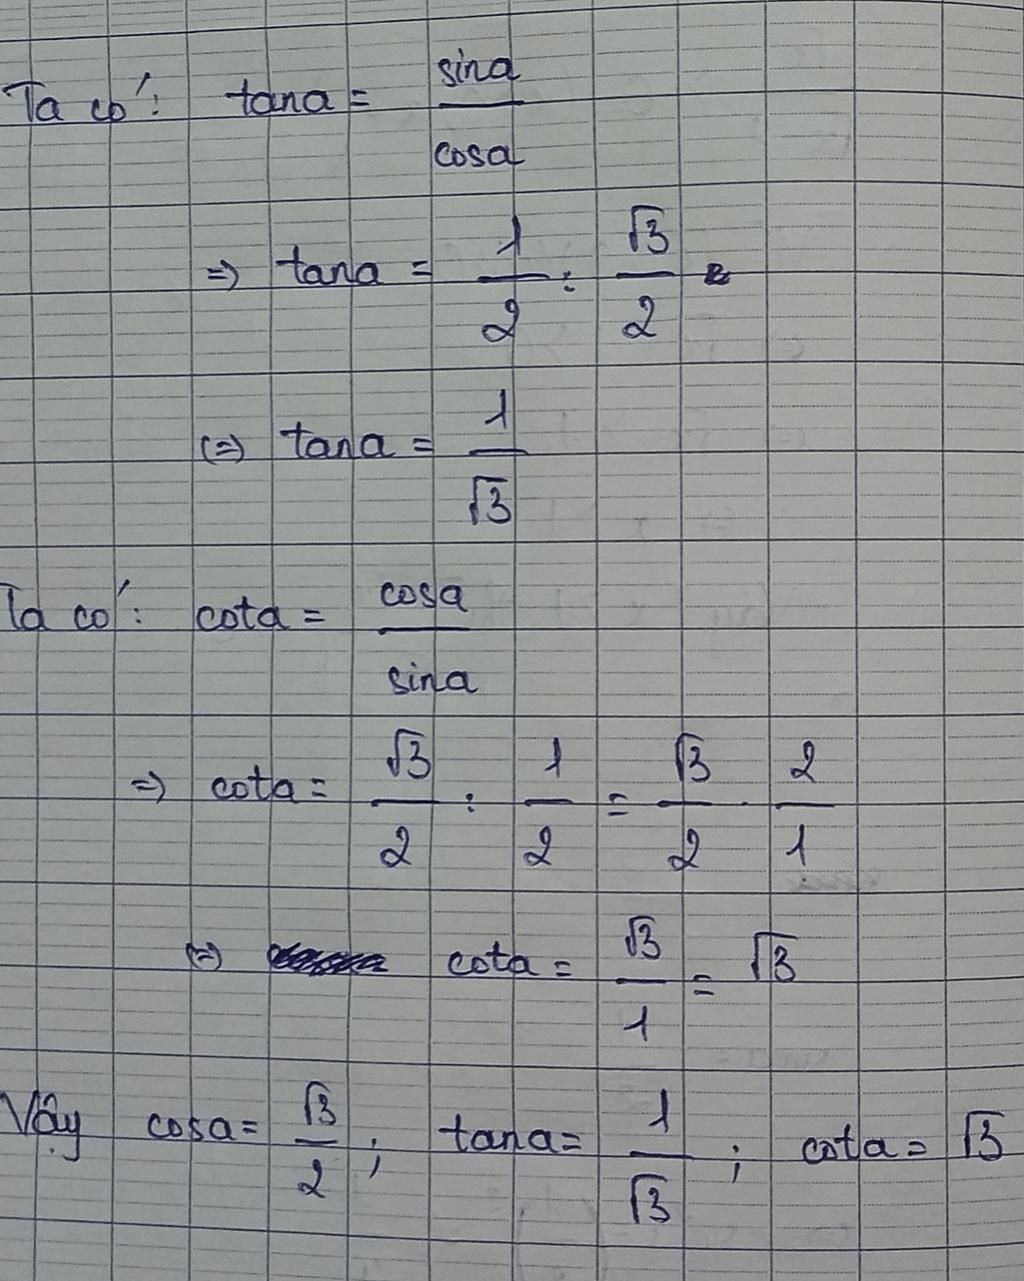 Ta có: tana = sina / cosa
=> tana = 1/2 : √3/2
(=) tana = 1/√3
Ta có: cota = cosa / sina
=> cota = √3/2 : 1/2 = √3/2 . 2/1
(=) cota = √3/1 = √3
Vậy cosa = √3/2 ; tana = 1/√3 ; cota = √3